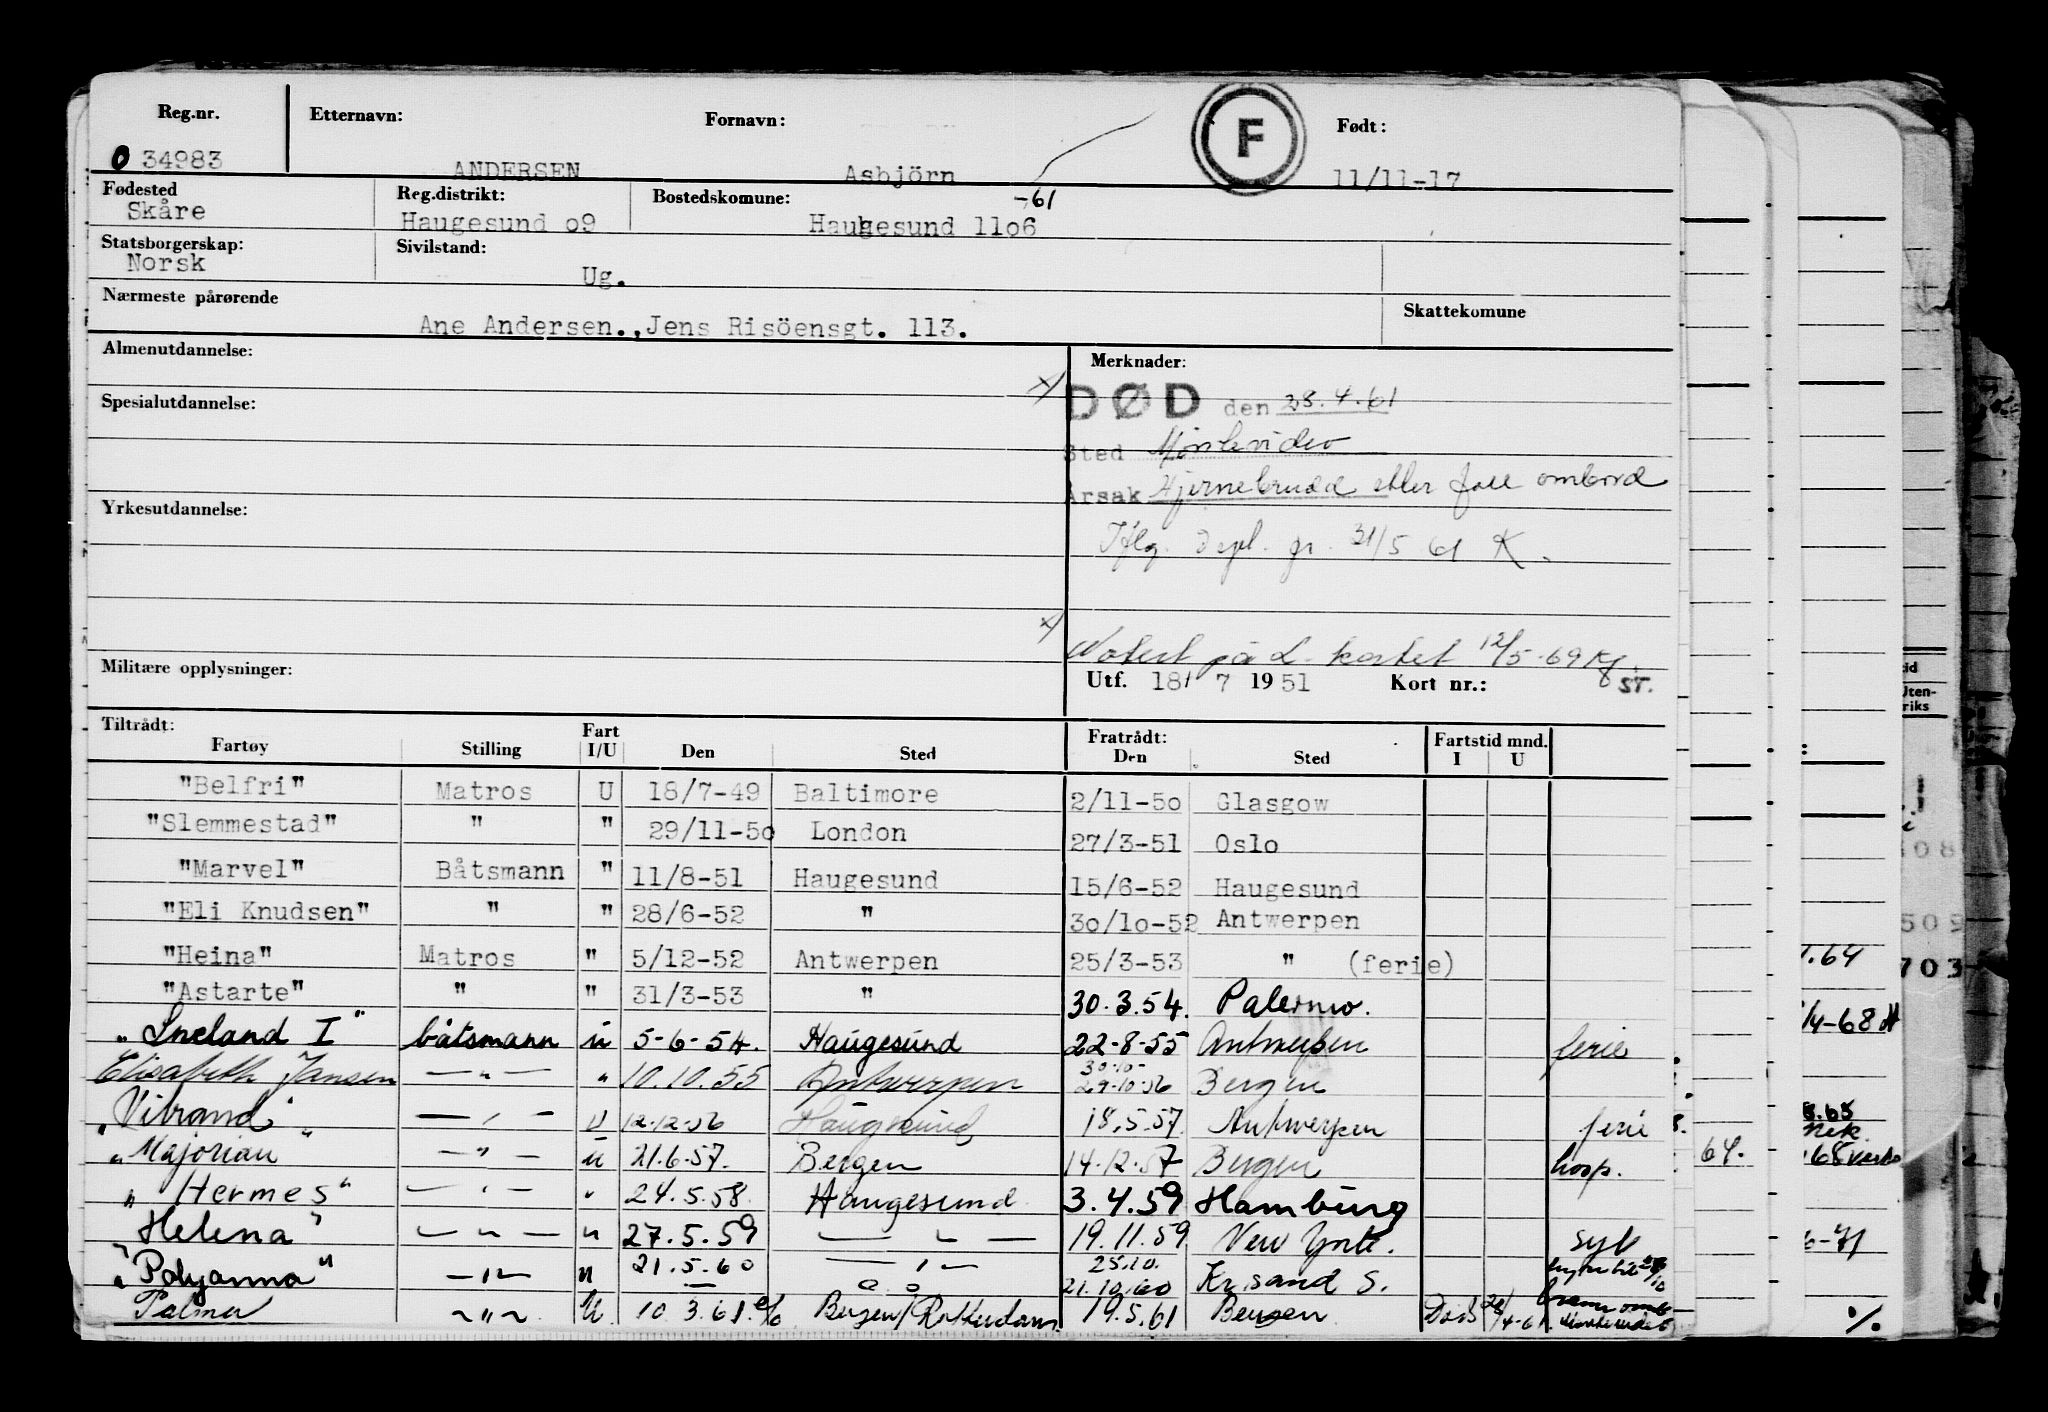 Reg.nr. Etternavn: Fornavn: F Født:
0 34983 ANDERSEN Asbjörn 11/11-17
Fødested Reg.distrikt: Bostedskomune: -61
Skåre Haugesund o9 Haugesund 11o6
Statsborgerskap: Sivilstand:
Norsk Ug.
Nærmeste pårørende Skattekomune
Ane Andersen.,Jens Risöensgt. 113.
Almenutdannelse: Merknader:
x) DØD den 28.4.61
Spesialutdannelse:
Sted Montevideo
Årsak Hjernebrudd etter fall ombord
Yrkesutdannelse:
Iflg. Depl. fr. 31/5 61 K.
x) Notert på L. kortet 12/5-69
Militære opplysninger: Utf. 18/ 7 1951 Kort nr.: ST.
Tiltrådt: Fart Fratrådt: Fartstid mnd.
Fartøy Stilling I/U Den Sted Den Sted I U
"Belfri" Matros U 18/7-49 Baltimore 2/11-5o Glasgow
"Slemmestad" " " 29/11-5o London 27/3-51 Oslo
"Marvel" Båtsmann " 11/8-51 Haugesund 15/6-52 Haugesund
"Eli Knudsen" " " 28/6-52 " 3o/1o-52 Antwerpen
"Heina" Matros " 5/12-52 Antwerpen 25/3-53 " (ferie)
"Astarte" " " 31/3-53 " 30.3.54. Palermo.
"Sneland I" båtsmann u 5-6-54. Haugesund 22-8-55 Antwerpen ferie
Elisabeth Jansen —"— " 10.10.55 Antwerpen 30.10- 29.10.56 Bergen
"Vibrand" —"— U 12.12.56 Haugesund 18.5.57. Antwerpen ferie
"Majorian —"— u 21.6.57. Bergen 14.12.57 Bergen hosp.
"Hermes" —"— " 24.5.58. Haugesund 3.4.59 Hamburg
Helena" —"— " 27.5.59 —"— 19.11.59 New York. syk
"Pohjanna" —"— u 21.5.60 —"— 25.10. 21.10.60 Kr.sand S.
Palma —"— U. 10.3.61. Bergen/Rotterdam. 19.5.61 Bergen Død 28/4-61